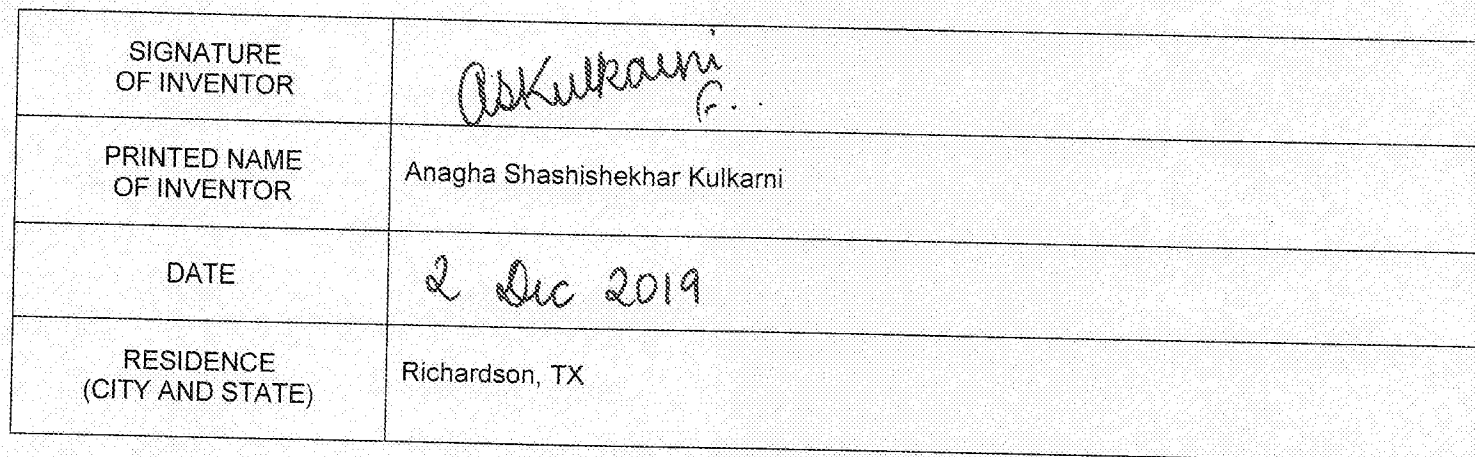 SIGNATURE
OF INVENTOR
ASKulkarni
PRINTED NAME
OF INVENTOR
Anagha Shashishekhar Kulkarni
DATE
2 Dec 2019
RESIDENCE
(CITY AND STATE)
Richardson, TX